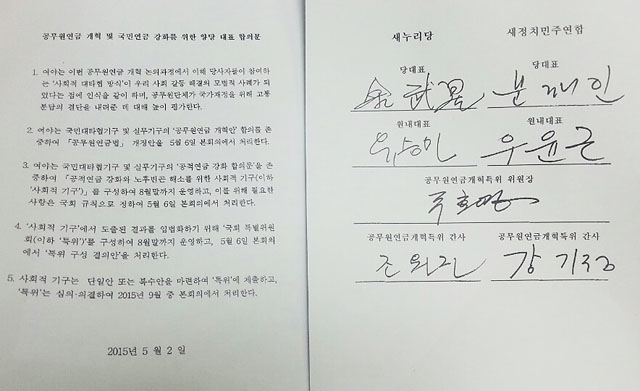 공무원연금 개혁 및 국민연금 강화를 위한 양당 대표 합의문
1. 여야는 이번 공무원연금 개혁 논의과정에서 이해 당사자들이 참여하
는 '사회적 대타협 방식'이 우리 사회 갈등 해결의 모범적 사례가 되
었다는 점에 인식을 같이 하며, 공무원단체가 국가재정을 위해 고통
분담의 결단을 내려준 데 대해 높이 평가한다.
2. 여야는 국민대타협기구 및 실무기구의 '공무원연금 개혁안' 합의를 존
중하여 「공무원연금법」 개정안을 5월 6일 본회의에서 처리한다.
3. 여야는 국민대타협기구 및 실무기구의 '공적연금 강화 합의문'을 존
중하여 「공적연금 강화와 노후빈곤 해소를 위한 사회적 기구(이하
'사회적 기구')」를 구성하여 8월말까지 운영하고, 이를 위해 필요한
사항은 국회 규칙으로 정하여 5월 6일 본회의에서 처리한다.
4. '사회적 기구'에서 도출된 결과를 입법화하기 위해 '국회 특별위원
회(이하 '특위')'를 구성하여 8월말까지 운영하고, 5월 6일 본회의
에서 '특위 구성 결의안'을 처리한다.
5. 사회적 기구는 단일안 또는 복수안을 마련하여 '특위'에 제출하고,
'특위'는 심의·의결하여 2015년 9월 중 본회의에서 처리한다.
2015년 5월 2일
새누리당 새정치민주연합
당대표 당대표
金武星 문재인
원내대표 원내대표
유승민 우윤근
공무원연금개혁특위 위원장
주호영
공무원연금개혁특위 간사 공무원연금개혁특위 간사
조원진 강기정